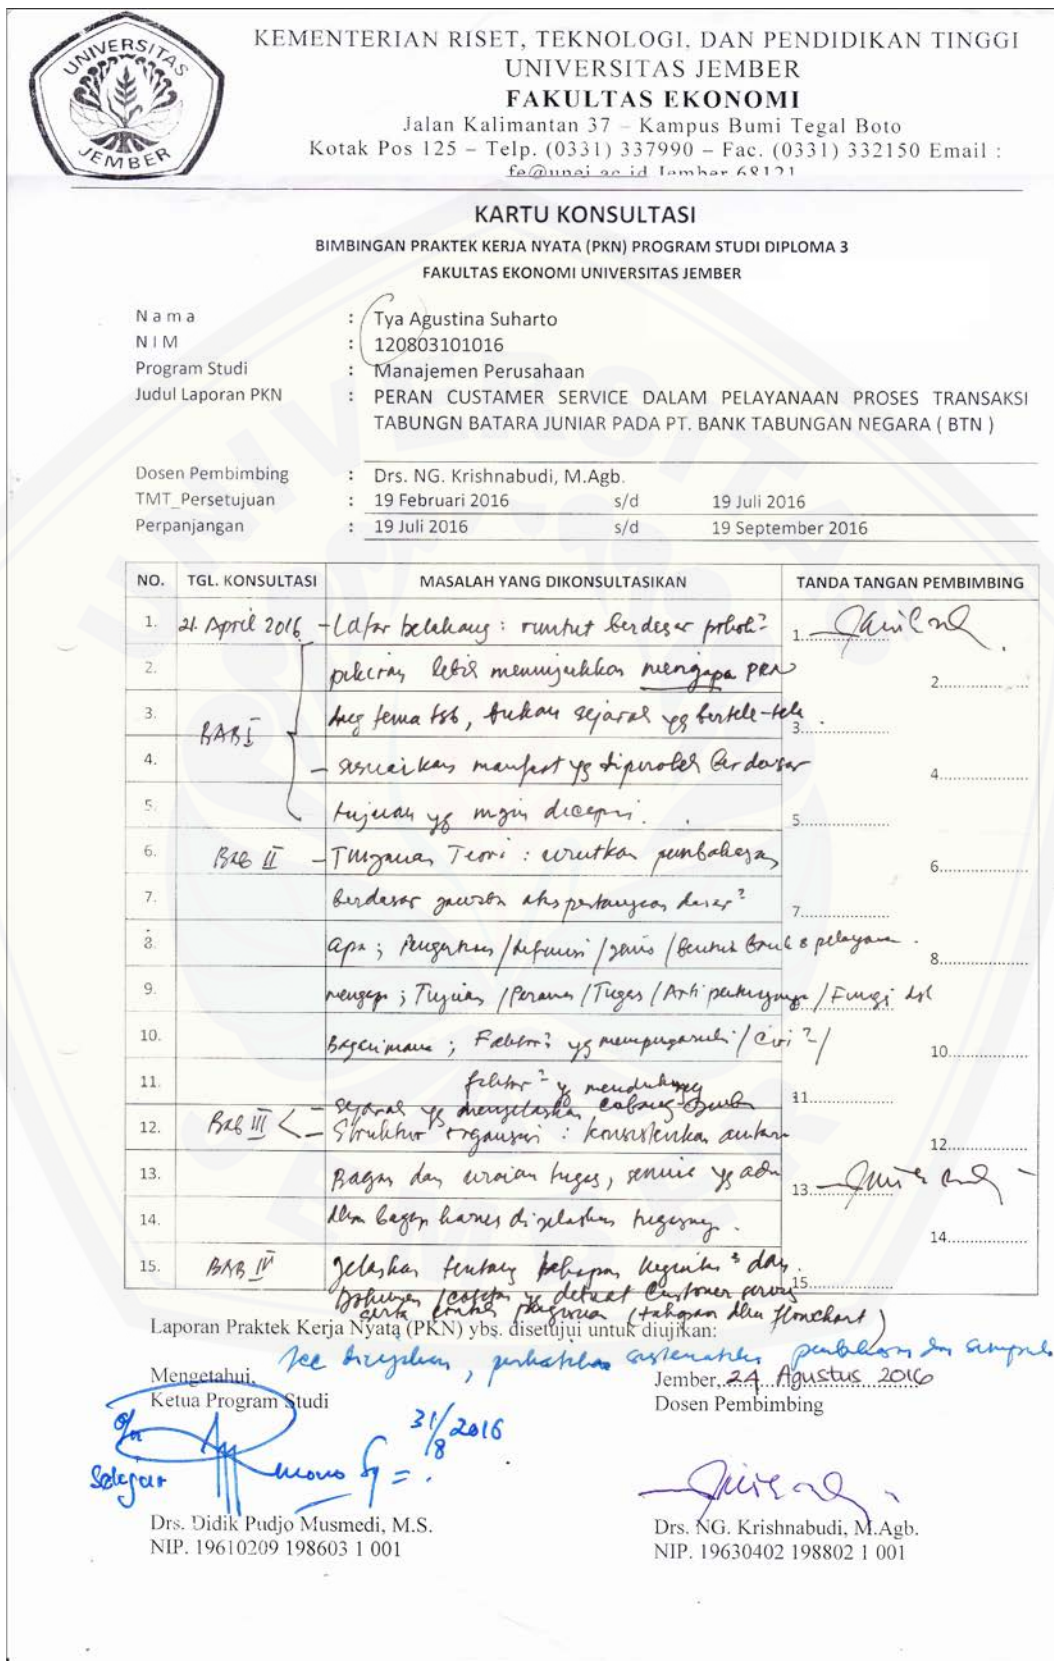 UNIVERSITAS
JEMBER
KEMENTERIAN RISET, TEKNOLOGI, DAN PENDIDIKAN TINGGI
UNIVERSITAS JEMBER
FAKULTAS EKONOMI
Jalan Kalimantan 37 – Kampus Bumi Tegal Boto
Kotak Pos 125 – Telp. (0331) 337990 – Fac. (0331) 332150 Email :
fe@unej.ac.id Jember 68121
KARTU KONSULTASI
BIMBINGAN PRAKTEK KERJA NYATA (PKN) PROGRAM STUDI DIPLOMA 3
FAKULTAS EKONOMI UNIVERSITAS JEMBER
Nama : Tya Agustina Suharto
NIM : 120803101016
Program Studi : Manajemen Perusahaan
Judul Laporan PKN : PERAN CUSTAMER SERVICE DALAM PELAYANAAN PROSES TRANSAKSI
TABUNGN BATARA JUNIAR PADA PT. BANK TABUNGAN NEGARA ( BTN )
Dosen Pembimbing : Drs. NG. Krishnabudi, M.Agb.
TMT_Persetujuan : 19 Februari 2016 s/d 19 Juli 2016
Perpanjangan : 19 Juli 2016 s/d 19 September 2016
NO. TGL. KONSULTASI MASALAH YANG DIKONSULTASIKAN TANDA TANGAN PEMBIMBING
1. 21 April 2016 - Latar belakang : runtut berdasar pokok² 1.
2. pikiran lebih menunjukkan mengapa PKN 2.
3. dng tema tsb, bukan sejarah yg bertele-tele. 3.
BAB I
4. - sesuaikan manfaat yg diperoleh berdasar 4.
5. tujuan yg ingin dicapai. 5.
6. Bab II - Tinjauan Teori : urutkan pembahasan 6.
7. berdasar jawaban atas pertanyaan dasar² 7.
8. apa ; Pengertian / definisi / jenis / bentuk Bank & pelayanan. 8.
9. mengapa ; Tujuan / Peranan / Tugas / Arti pentingnya / Fungsi dsl
10. Bagaimana ; Faktor² yg mempengaruhi / Ciri² / 10.
11. faktor² yg mendukung 11.
- sejarah yg menjelaskan cabang
12. Bab III - Struktur organisasi : konsistenkan antara 12.
13. Bagan dan uraian tugas, semua yg ada 13.
14. dlm bagan harus dijelaskan tugasnya. 14.
15. BAB IV Jelaskan tentang tahapan kegiatan² dan 15.
Dokumen / catatan yg dibuat Customer servis
serta (tahapan dlm flowchart)
Laporan Praktek Kerja Nyata (PKN) ybs. disetujui untuk diujikan:
Acc diujikan, perhatikan sistematika pembahasan dan simpulan
Mengetahui, Jember, 24 Agustus 2016
Ketua Program Studi Dosen Pembimbing
31/8 2016
Drs. Didik Pudjo Musmedi, M.S. Drs. NG. Krishnabudi, M.Agb.
NIP. 19610209 198603 1 001 NIP. 19630402 198802 1 001